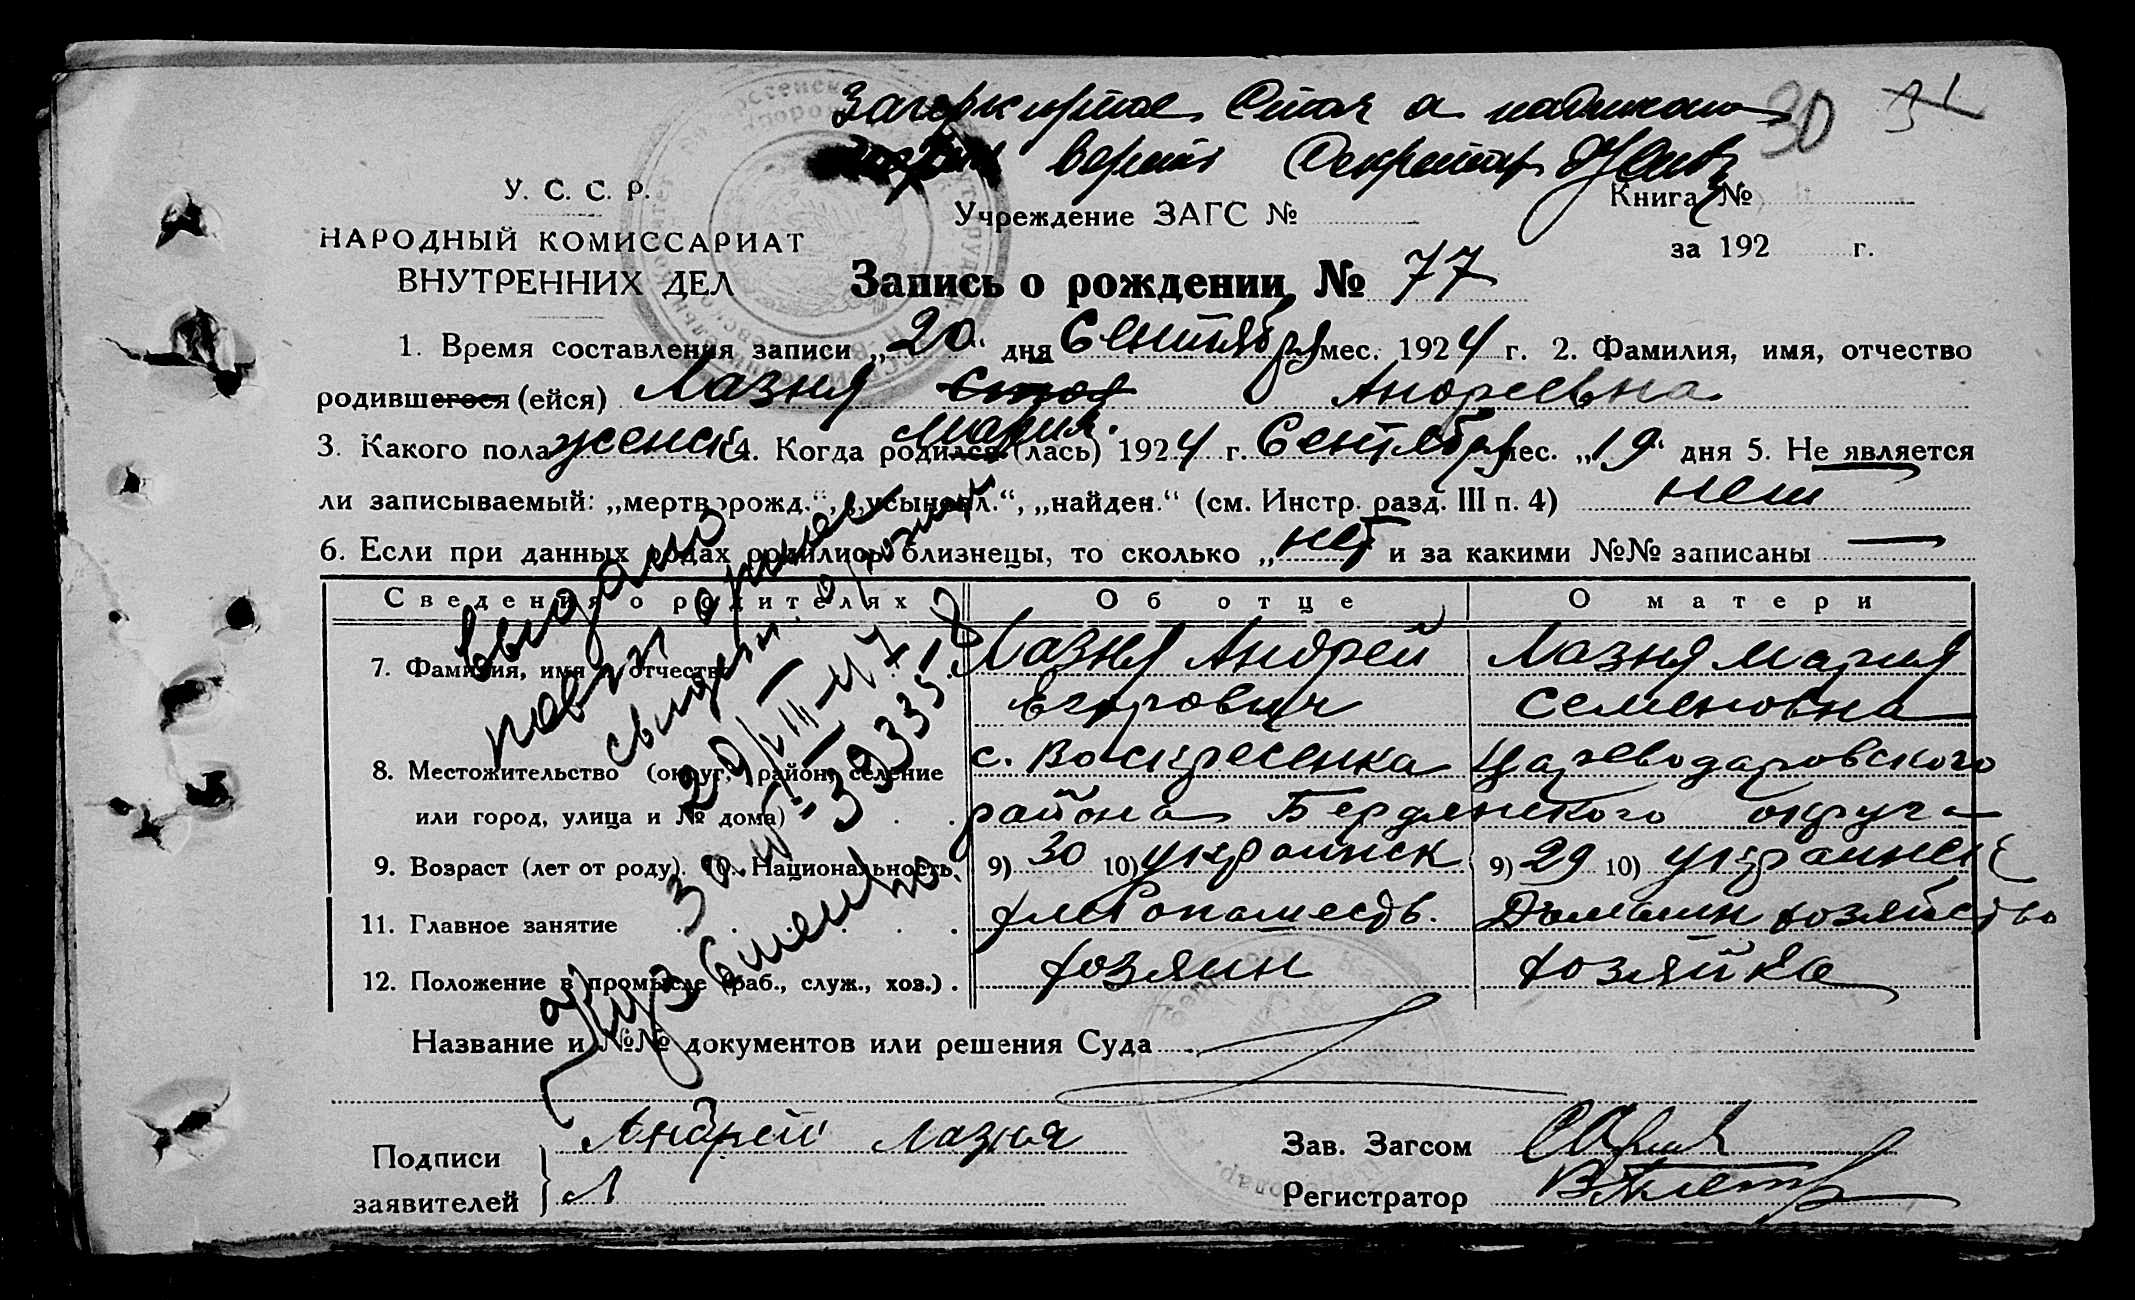 30 31
Зачеркнутое Стоя а надписан
верить Секретарь
У. С. С. Р.
НАРОДНЫЙ КОМИССАРИАТ
ВНУТРЕННИХ ДЕЛ
Учреждение ЗАГС №
Книга №
за 192 г.
Запись о рождении № 77
1. Время составления записи „20“ дня Сентября мес. 1924 г. 2. Фамилия, имя, отчество
родившегося (ейся) Лазня Стоя Андреевна
Мария
3. Какого пола женск 4. Когда родился (лась) 1924 г. Сентября мес. „19“ дня 5. Не является
ли записываемый: „мертворожд.“, „усыновл.“, „найден.“ (см. Инстр. разд. III п. 4) нет
6. Если при данных родах родились близнецы, то сколько „нет и за какими №№ записаны —
Сведения о родителях Об отце О матери
7. Фамилия, имя и отчество Лазня Андрей Лазня Мария
Егорович Семеновна
8. Местожительство (округ, район, селение с. Воскресенка Цареводаровского
или город, улица и № дома) района Бердянского округа
9. Возраст (лет от роду). 10. Национальность. 9) 30 10) украинск 9) 29 10) украинск
11. Главное занятие хлебопашеств. Домашн хозяйство
12. Положение в промысле (раб., служ., хоз.) . хозяин хозяйка
Название и №№ документов или решения Суда
Подписи
заявителей
Андрей Лазня
Л
Зав. Загсом
Регистратор
выдано
повторное
свидет. о рожден
29/VIII-47